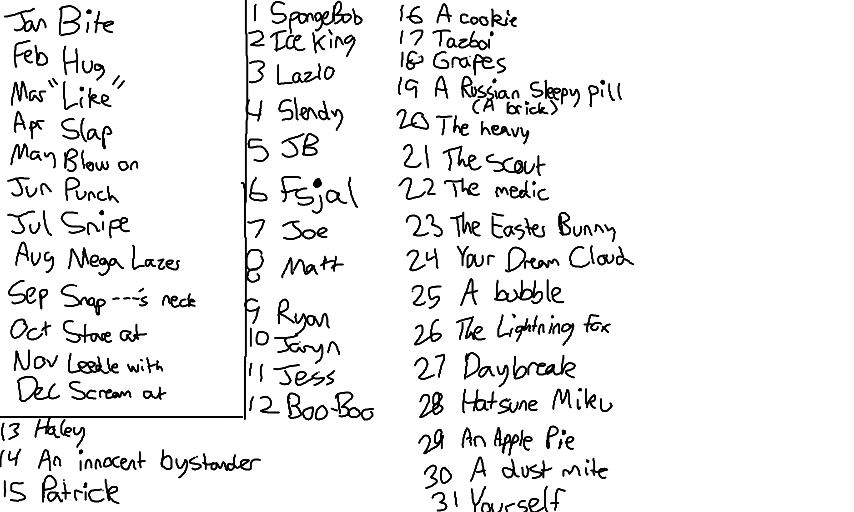 Jan Bite
Feb Hug
Mar "Like"
Apr Slap
May Blow on
Jun Punch
Jul Snipe
Aug Mega Lazer
Sep Snap ---'s neck
Oct Stare at
Nov Leedle with
Dec Scream at
1 SpongeBob
2 Ice King
3 Lazlo
4 Slendy
5 JB
6 Fsjal
7 Joe
8 Matt
9 Ryan
10 Jaryn
11 Jess
12 Boo-Boo
13 Haley
14 An innocent bystander
15 Patrick
16 A cookie
17 Tazboi
18 Grapes
19 A Russian Sleepy pill
(A brick)
20 The heavy
21 The scout
22 The medic
23 The Easter Bunny
24 Your Dream Cloud
25 A bubble
26 The Lightning fox
27 Daybreak
28 Hatsune Miku
29 An Apple Pie
30 A dust mite
31 Yourself